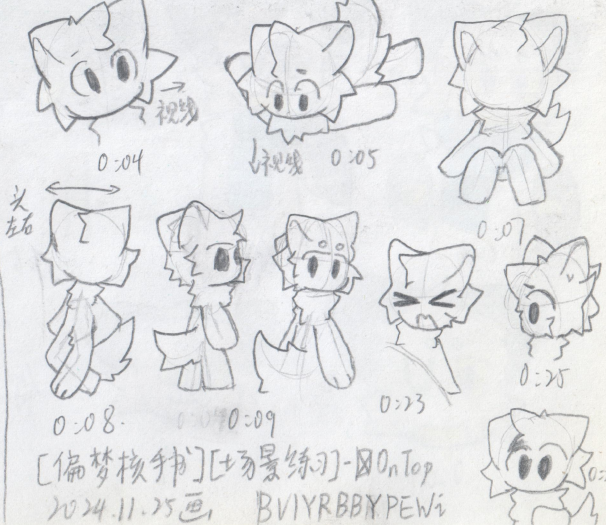 视线
0:04
视线 0:05
0:07
头
左右
0:08
0:09
0:23
0:25
[偏梦核手书][场景练习]-OnTop
2024.11.25画 BV1YRBBYPEWi